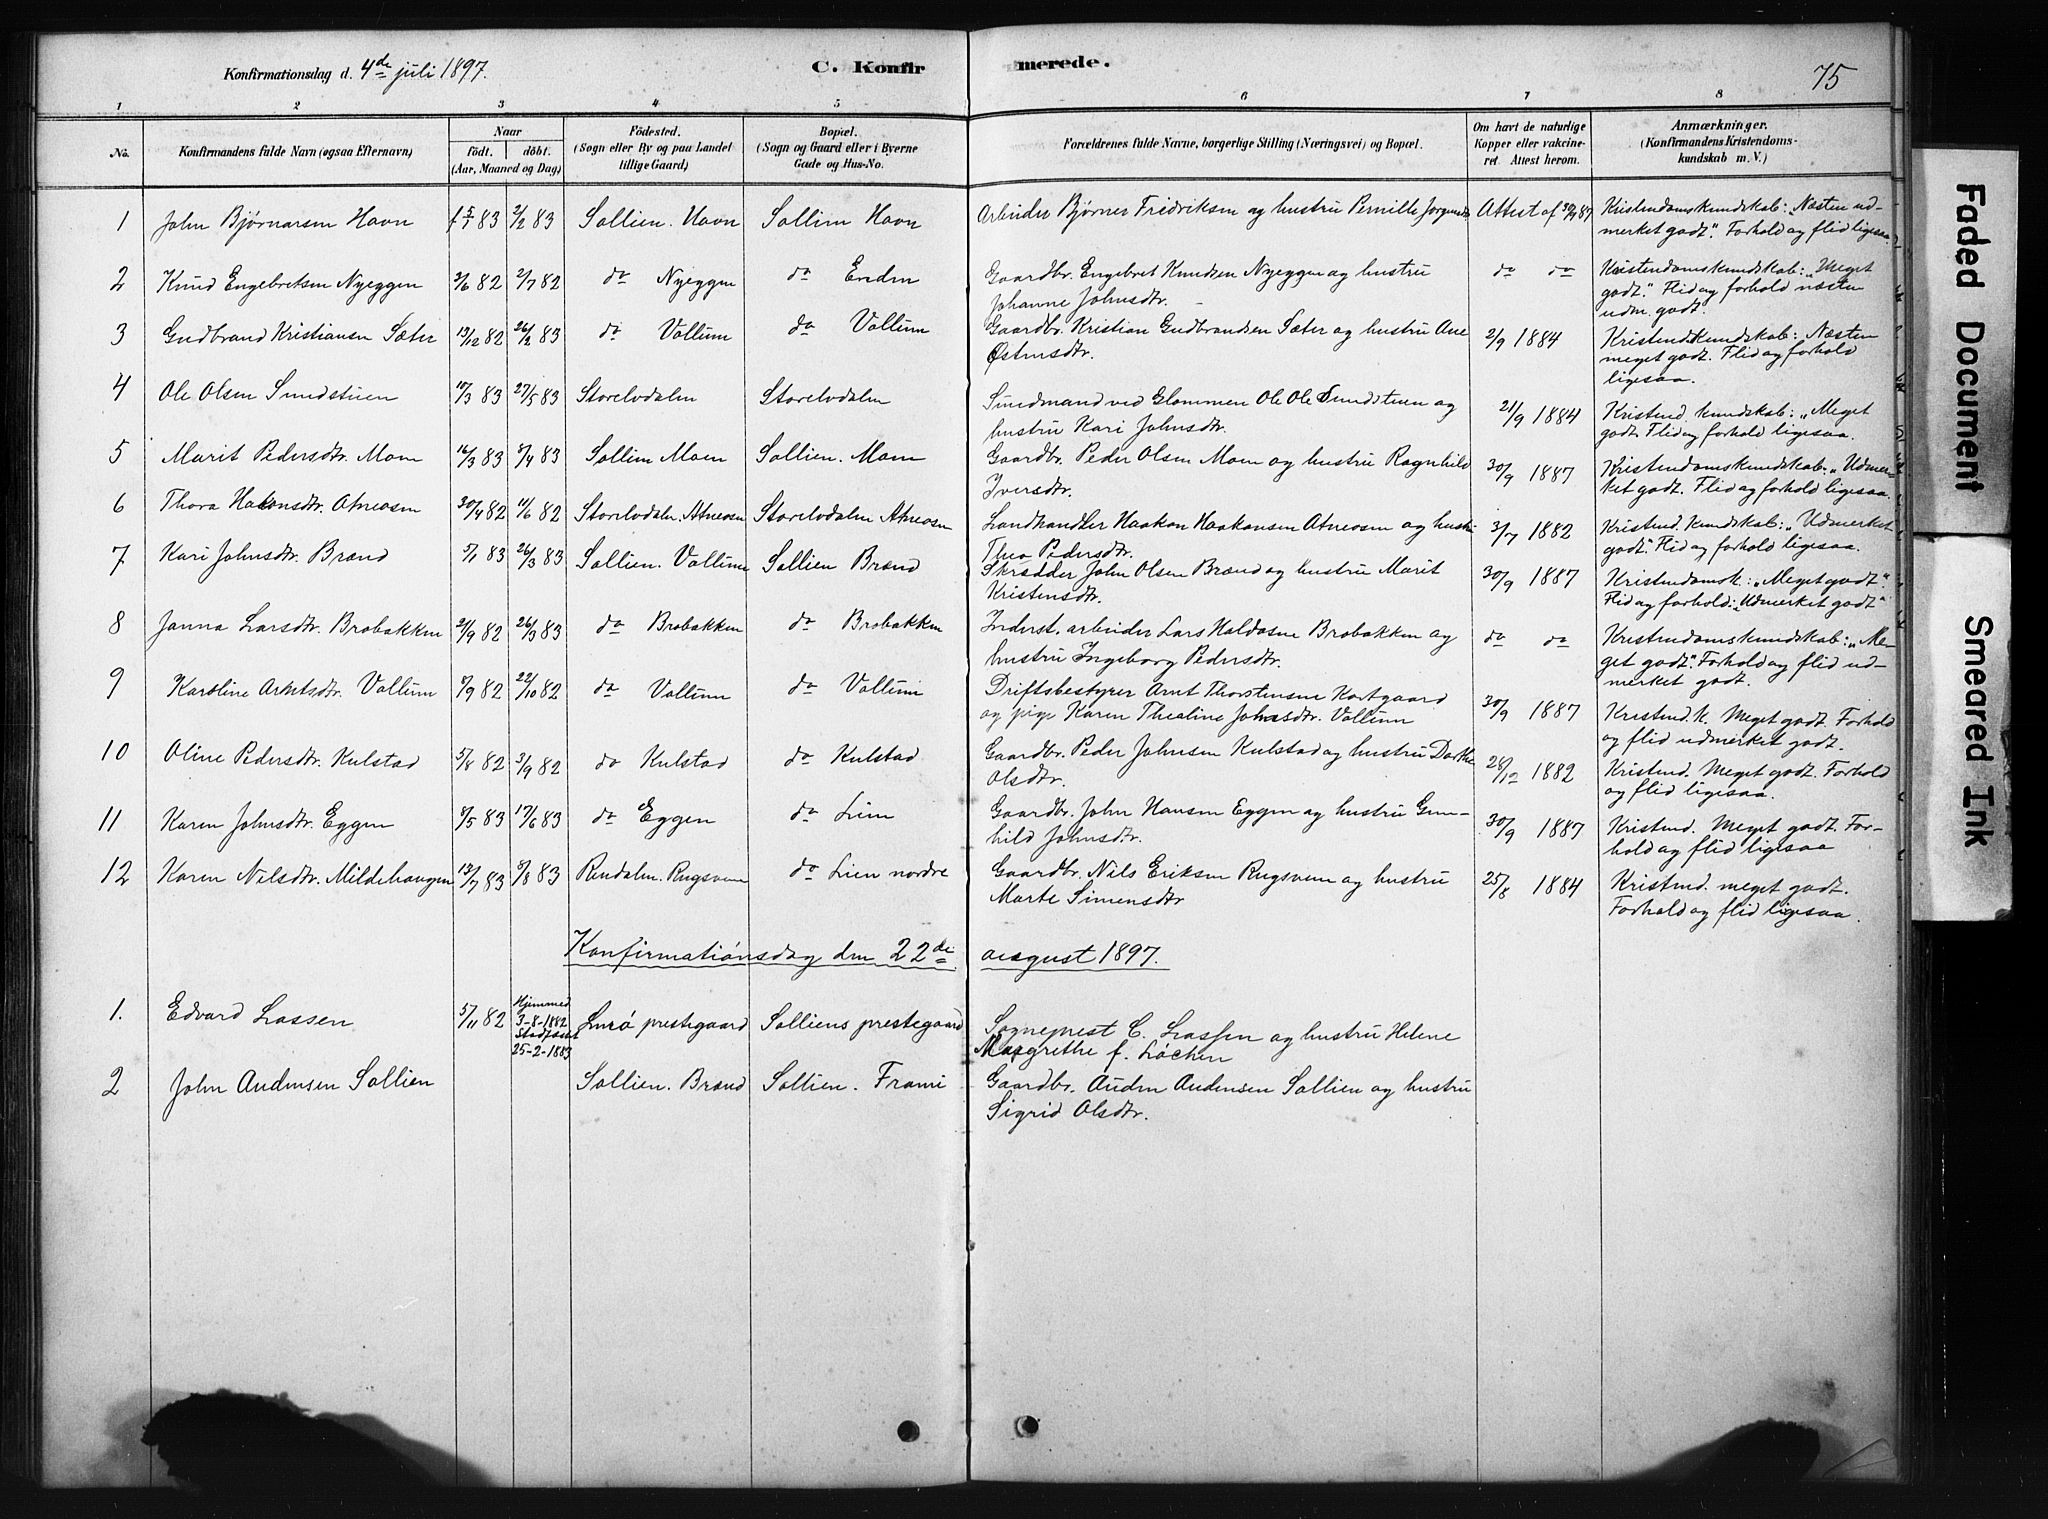 Konfirmationsdag d. 4de juli 1897.
C. Konfirmerede.
75
1 2 3 4 5 6 7 8
No.
Konfirmandens fulde Navn (ogsaa Efternavn)
Naar
födt. döbt.
(Aar, Maaned og Dag)
Födested.
(Sogn eller By og paa Landet
tillige Gaard.)
Bopæl.
(Sogn og Gaard eller i Byerne
Gade og Hus-No.
Forældrenes fulde Navne, borgerlige Stilling (Næringsvei) og Bopæl.
Om havt de naturlige
Kopper eller vakcine-
ret. Attest herom.
Anmærkninger.
(Konfirmandens Kristendoms-
kundskab m. V.)
1 John Bjørnarsen Havn 83 2/2 83 Sollien. Havn Sollien Havn Arbeider Bjørner Fridriksen og hustru Pernille Attest af 30/9 87 Kristendomskundskab: "Næsten ud-
merket godt". Forhold og flid ligesaa.
2 Knud Engebretsen Nyeggen 3/6 82 2/7 82 do Nyeggen do Enden Gaardbr. Engebret Knudsen Nyeggen og hustru do do Kristendomskundskab: "Meget
Johanne Johnsdtr. godt." Flid og forhold næsten
udm. godt.
3 Gudbrand Kristiansen Sæter 13/12 82 26/2 83 do Vollum do Vollum Gaardbr. Kristian Gudbrandsen Sæter og hustru Ane 2/9 1884 Kristendkundskab: Næsten
Østensdtr. meget godt. Flid og forhold
ligesaa.
4 Ole Olsen Sundstuen 10/3 83 27/5 83 Storelvdalen Storelvdalen Sundmand ved Glommen Ole Ols Sundstuen og 21/9 1884 Kristend kundskab: "Meget
hustru Kari Johnsdtr. godt. Flid og forhold ligesaa.
5 Marit Pedersdtr. Moen 16/3 83 8/4 83 Sollien Moen Sollien. Moen Gaardbr. Peder Olsen Moen og hustru Ragnhild 30/9 1887 Kristendomskundskab: "Udmer-
Iversdtr. ket godt. Flid og forhold ligesaa.
6 Thora Hakonsdtr. Atneosen 30/4 82 11/6 82 Storelvdalen. Atneosen Storelvdalen Atneosen Landhandler Haakon Haakonsen Atneosen og hustru 3/7 1882 Kristend. kundskab: "Udmerket
Thea Pedersdtr. godt". Flid og forhold ligesaa.
7 Kari Johnsdtr. Brænd 5/1 83 26/3 83 Sollien. Vollum Sollien Brænd Skrædder John Olsen Brænd og hustru Marit 30/9 1887 Kristendomsk: "Meget godt".
Kristensdtr. Flid og forhold: "Udmerket godt"
8 Janna Larsdtr. Brobakken 21/9 82 26/3 83 do Brobakken do Brobakken Inderst. arbeider Lars Haldosne Brobakken og do do Kristendomskundskab: "Me-
hustru Ingeborg Pedersdtr. get godt". Forhold og flid ud-
merket godt.
9 Karoline Arntsdtr. Vollum 9/9 82 22/10 82 do Vollum do Vollum Driftsbestyrer Arnt Thorstensne Kortgaard 30/9 1887 Kristend. k. Meget godt. Forhold
og pige Karen Thealine Johnsdtr. Vollum og flid udmerket godt.
10 Oline Pedersdtr. Kulstad 5/8 82 3/9 82 do Kulstad do Kulstad Gaardbr. Peder Johnsen Kulstad og hustru Dorthe 28/12 1882 Kristend. Meget godt. Forhold
Olsdtr. og flid ligesaa.
11 Karen Johnsdtr. Eggen 8/5 83 17/6 83 do Eggen do Lien Gaardbr. John Hansen Eggen og hustru Gun- 30/9 1887 Kristend. Meget godt. For-
hild Johnsdtr. hold og flid ligesaa
12 Karen Nilsdtr. Mildehaugen 13/7 83 5/8 83 Rendalen. Rugsveen do Lien nordre Gaardbr. Nils Eriksen Rugsveen og hustru 25/8 1884 Kristend. meget godt.
Marte Simensdtr Forhold og flid ligesaa.
Konfirmationsdag den 22de august 1897.
1. Edvard Lassen 5/11 82 Hjemmed 3-8-1882 Stadfæst 25-2-1883 prestegaard Solliens prestegaard Sogneprest C. Lassen og hustru Helene
Margrethe f. Løchen
2 John Audensen Sollien Sollien. Brænd Sollien. Frami Gaardbr. Auden Audensen Sollien og hustru
Sigrid Olsdtr.
Faded Document
Smeared Ink